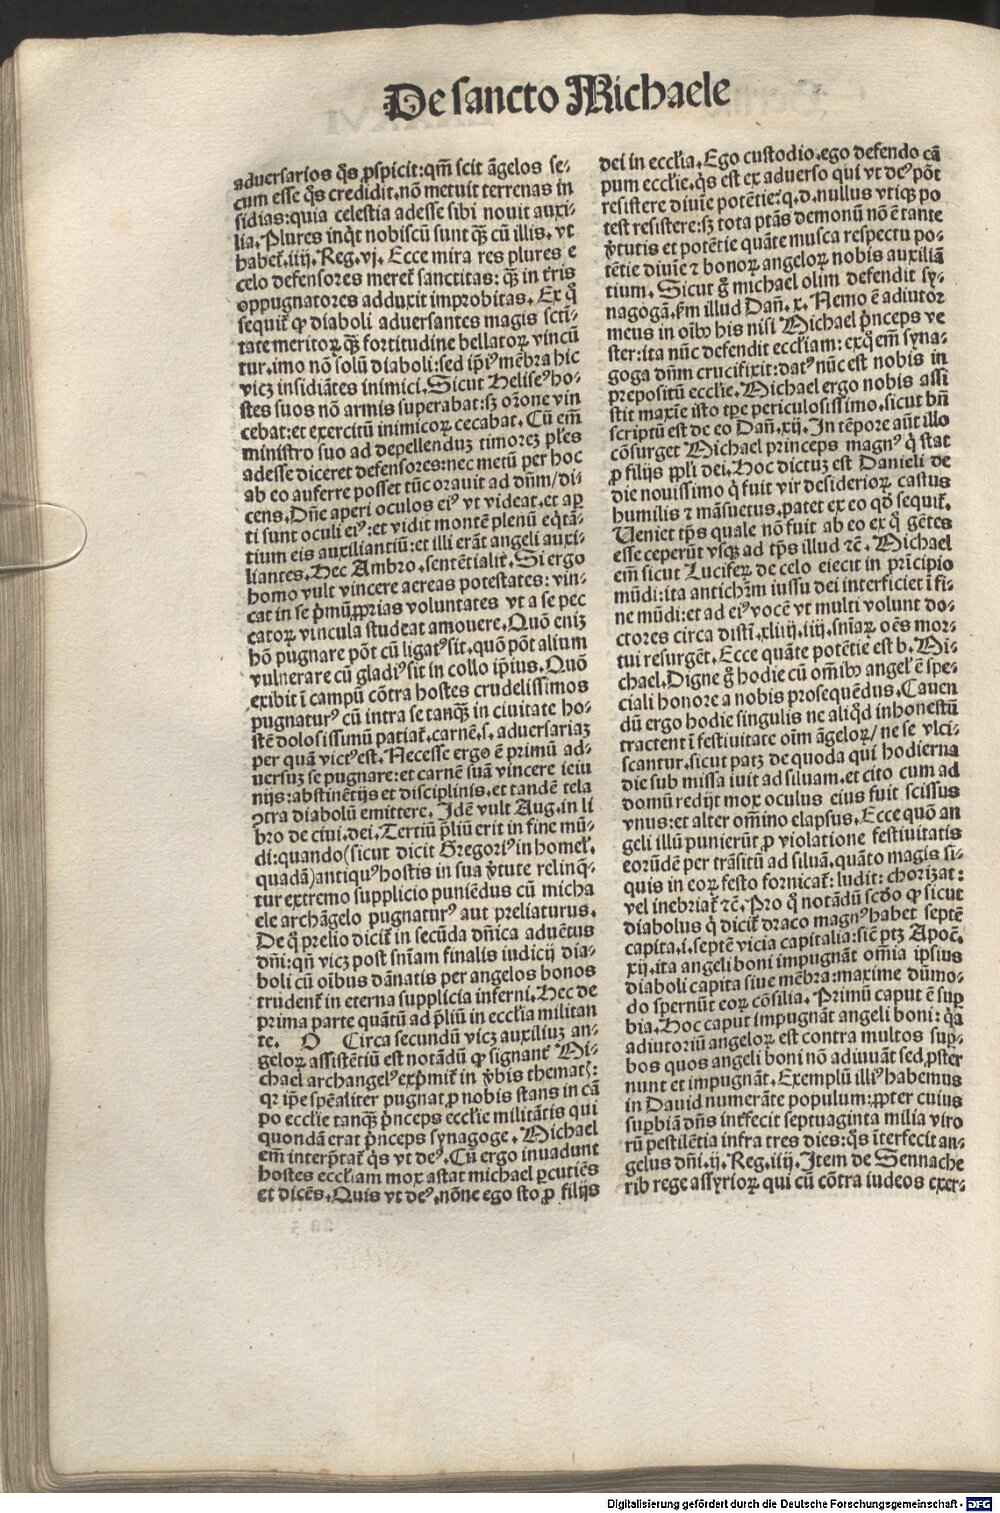 De sancto Michaele
adversarios q̄s ꝓspicit: qm̄ scit āgelos se⸗
cum esse q̄s credidit. nō metuit terrenas in
sidias: quia celestia adesse sibi nouit auxi⸗
lia. Plures inq̇t nobiscū sunt qᷓ cū illis. vt
habet᷑. iiij. Reg. vj. Ecce mira res plures e
celo defensores meret᷑ sanctitas: qᷓ in t᷑ris
oppugnatores adduxit improbitas. Ex qͦ
sequit᷑ ꝙ diaboli adversantes magis scti⸗
tate meritoꝝ qᷓ fortitudine bellatoꝝ vincū
tur. imo nō solū diaboli: sed ip̄iꝰ mēbra hic
vicꝫ insidiātes inimici. Sicut Heliseꝰ ho⸗
stes suos nō armis superabat: sꝫ or̄one vin
cebat: et exercitū inimicoꝝ cecabat. Cū em̄
ministro suo ad depellenduꝫ timoreꝫ pl̄es
adesse diceret defensores: nec metū per hoc
ab eo auferre posset tūc orauit ad dn̄m/di⸗
cens. Dn̄e aperi oculos eiꝰ vt videat. et aꝑ
ti sunt oculi eiꝰ: et vidit montē plenū eq̇tā⸗
tium eis auxiliantiū: et illi erāt angeli auxi⸗
liantes. Hec Ambro. sentētialit᷑. Si ergo
homo vult vincere aereas potestates: vin⸗
cat in se p̄mū ꝓprias voluntates vt a se pec
catoꝝ vincula studeat amouere. Quō eniꝫ
hō pugnare pōt cū ligatꝰ sit. quō pōt alium
vulnerare cū gladiꝰ sit in collo ip̄ius. Quō
exibit ī campū cōtra hostes crudelissimos
pugnaturꝰ cū intra se tanqᷓ in ciuitate ho⸗
stē dolosissimū patiat᷑. carnē. s. adversariaꝫ
per quā victꝰ est. Necesse ergo ē primū ad⸗
uersuꝫ se pugnare: et carnē suā vincere ieiu
nijs: abstinētijs et disciplinis. et tandē tela
ꝯtra diabolū emittere. Idē vult Aug. in li
bro de ciui. dei. Tertiū p̄liū erit in fine mū⸗
di: quando (sicut dicit Gregoriꝰ in homel᷑.
quadā) antiquꝰ hostis in sua v̇tute relinq̄⸗
tur extremo supplicio puniēdus cū micha
ele archāgelo pugnaturꝰ aut preliaturus.
De qͦ prelio dicit᷑ in secūda dn̄ica aduētus
dn̄i: qn̄ vicꝫ post sn̄iam finalis iudicij dia⸗
boli cū oībus dānatis per angelos bonos
trudent᷑ in eterna supplicia inferni. Hec de
prima parte quātū ad p̄liū in eccl̄ia militan
te. O Circa secundū vicꝫ auxiliuꝫ an⸗
geloꝝ assistētiū est notādū ꝙ signant᷑ Mi⸗
chael archangelꝰ exp̄mit᷑ in v̇bis thematꝭ:
qꝛ ip̄e spēaliter pugnat ꝓ nobis stans in cā
po eccl̄ie tanqᷓ p̄nceps eccl̄ie militātis qui
quondā erat p̄nceps synagoge. Michael
em̄ interp̄tat᷑ q̇s vt deꝰ. Cū ergo inuadunt
hostes eccl̄iam mox astat michael ꝑcutiēs
et dicēs. Quis vt deꝰ. nōne ego sto ꝓ filijs
dei in eccl̄ia. Ego custodio. ego defendo cā
pum eccl̄ie. q̇s est ex adverso qui vt deꝰ pōt
resistere diuīe potētie. q. d. nullus vtiqꝫ po
test resistere: sꝫ tota ptās demonū nō ē tante
v̇tutis et potētie quāte musca respectu po⸗
tētie diuīe ⁊ bonoꝝ angeloꝝ nobis auxiliā
tium. Sicut gͦ michael olim defendit sy⸗
nagogā. ẜm illud Dan̄. x. Nemo ē adiutor
meus in oībꝰ his nisi Michael p̄nceps ve
ster: ita nūc defendit eccl̄iam: ex qͦ em̄ syna⸗
goga dn̄m crucifixit: datꝰ nūc est nobis in
prepositū eccl̄ie. Michael ergo nobis assi
stit maxīe isto tꝑe periculosissimo. sicut bn̄
scriptū est de eo Dan̄. xij. In tēpore aūt illo
cōsurget Michael princeps magnꝰ q̇ stat
ꝓ filijs ppl̄i dei. Hoc dictuꝫ est Danieli de
die nouissimo q̇ fuit vir desiderioꝝ castus
humilis ⁊ māsuetus. patet ex eo qd̄ sequit᷑.
Veniet tp̄s quale nō fuit ab eo ex qͦ gētes
esse ceperūt vsqꝫ ad tp̄s illud ⁊c̄. Michael
em̄ sicut Luciferꝝ de celo eiecit in prīcipio
mūdi: ita antichr̄m iussu dei interficiet ī fi⸗
ne mūdi: et ad eiꝰ vocē vt multi volunt do⸗
ctores circa distī. xliiij. iiij. sn̄iaꝝ oēs mor⸗
tui resurgēt. Ecce quāte potētie est b. Mi⸗
chael. Digne gͦ hodie cū oībꝰ angel᷑ ē spe⸗
ciali honore a nobis prosequēdus. Cauen
dū ergo hodie singulis ne aliq̇d inhonestū
tractent ī festiuitate oīm āgeloꝝ/ ne se vlci⸗
scantur. sicut patꝫ de quoda qui hodierna
die sub missa iuit ad siluam. et cito cum ad
domū redijt mox oculus eius fuit scissus
vnus: et alter om̄ino elapsus. Ecce quō an
geli illū punierūt ꝓ violatione festiuitatis
eorūdē per trāsitū ad siluā. quāto magis si⸗
quis in eoꝝ festo fornicat᷑: ludit: chorizat:
vel inebriat᷑ ⁊c̄. Pro qͦ notādū scd̄o ꝙ sicut
diabolus q̇ dicit᷑ draco magnꝰ habet septē
capita. i. septē vicia capitalia: sic̄ ptꝫ Apoc̄.
xij. ita angeli boni impugnāt om̄ia ipsius
diaboli capita siue mēbra: maxime dūmo⸗
do spernūt eoꝝ cōsilia. Primū caput ē suꝑ
bia. Hoc caput impugnāt angeli boni: qꝛ
adiutoriū angeloꝝ est contra multos suꝑ⸗
bos quos angeli boni nō adiuuāt sed ꝓster
nunt et impugnāt. Exemplū illiꝰ habemus
in Dauid numerāte populum: ꝓpter cuius
suꝑbiā dn̄s int᷑fecit septuaginta milia viro
rū pestilētia infra tres dies: q̄s īterfecit an⸗
gelus dn̄i. ij. Reg. iiij. Item de Sennache
rib rege assyrioꝝ qui cū cōtra iudeos exer⸗
Digitalisierung gefördert durch die Deutsche Forschungsgemeinschaft - DFG